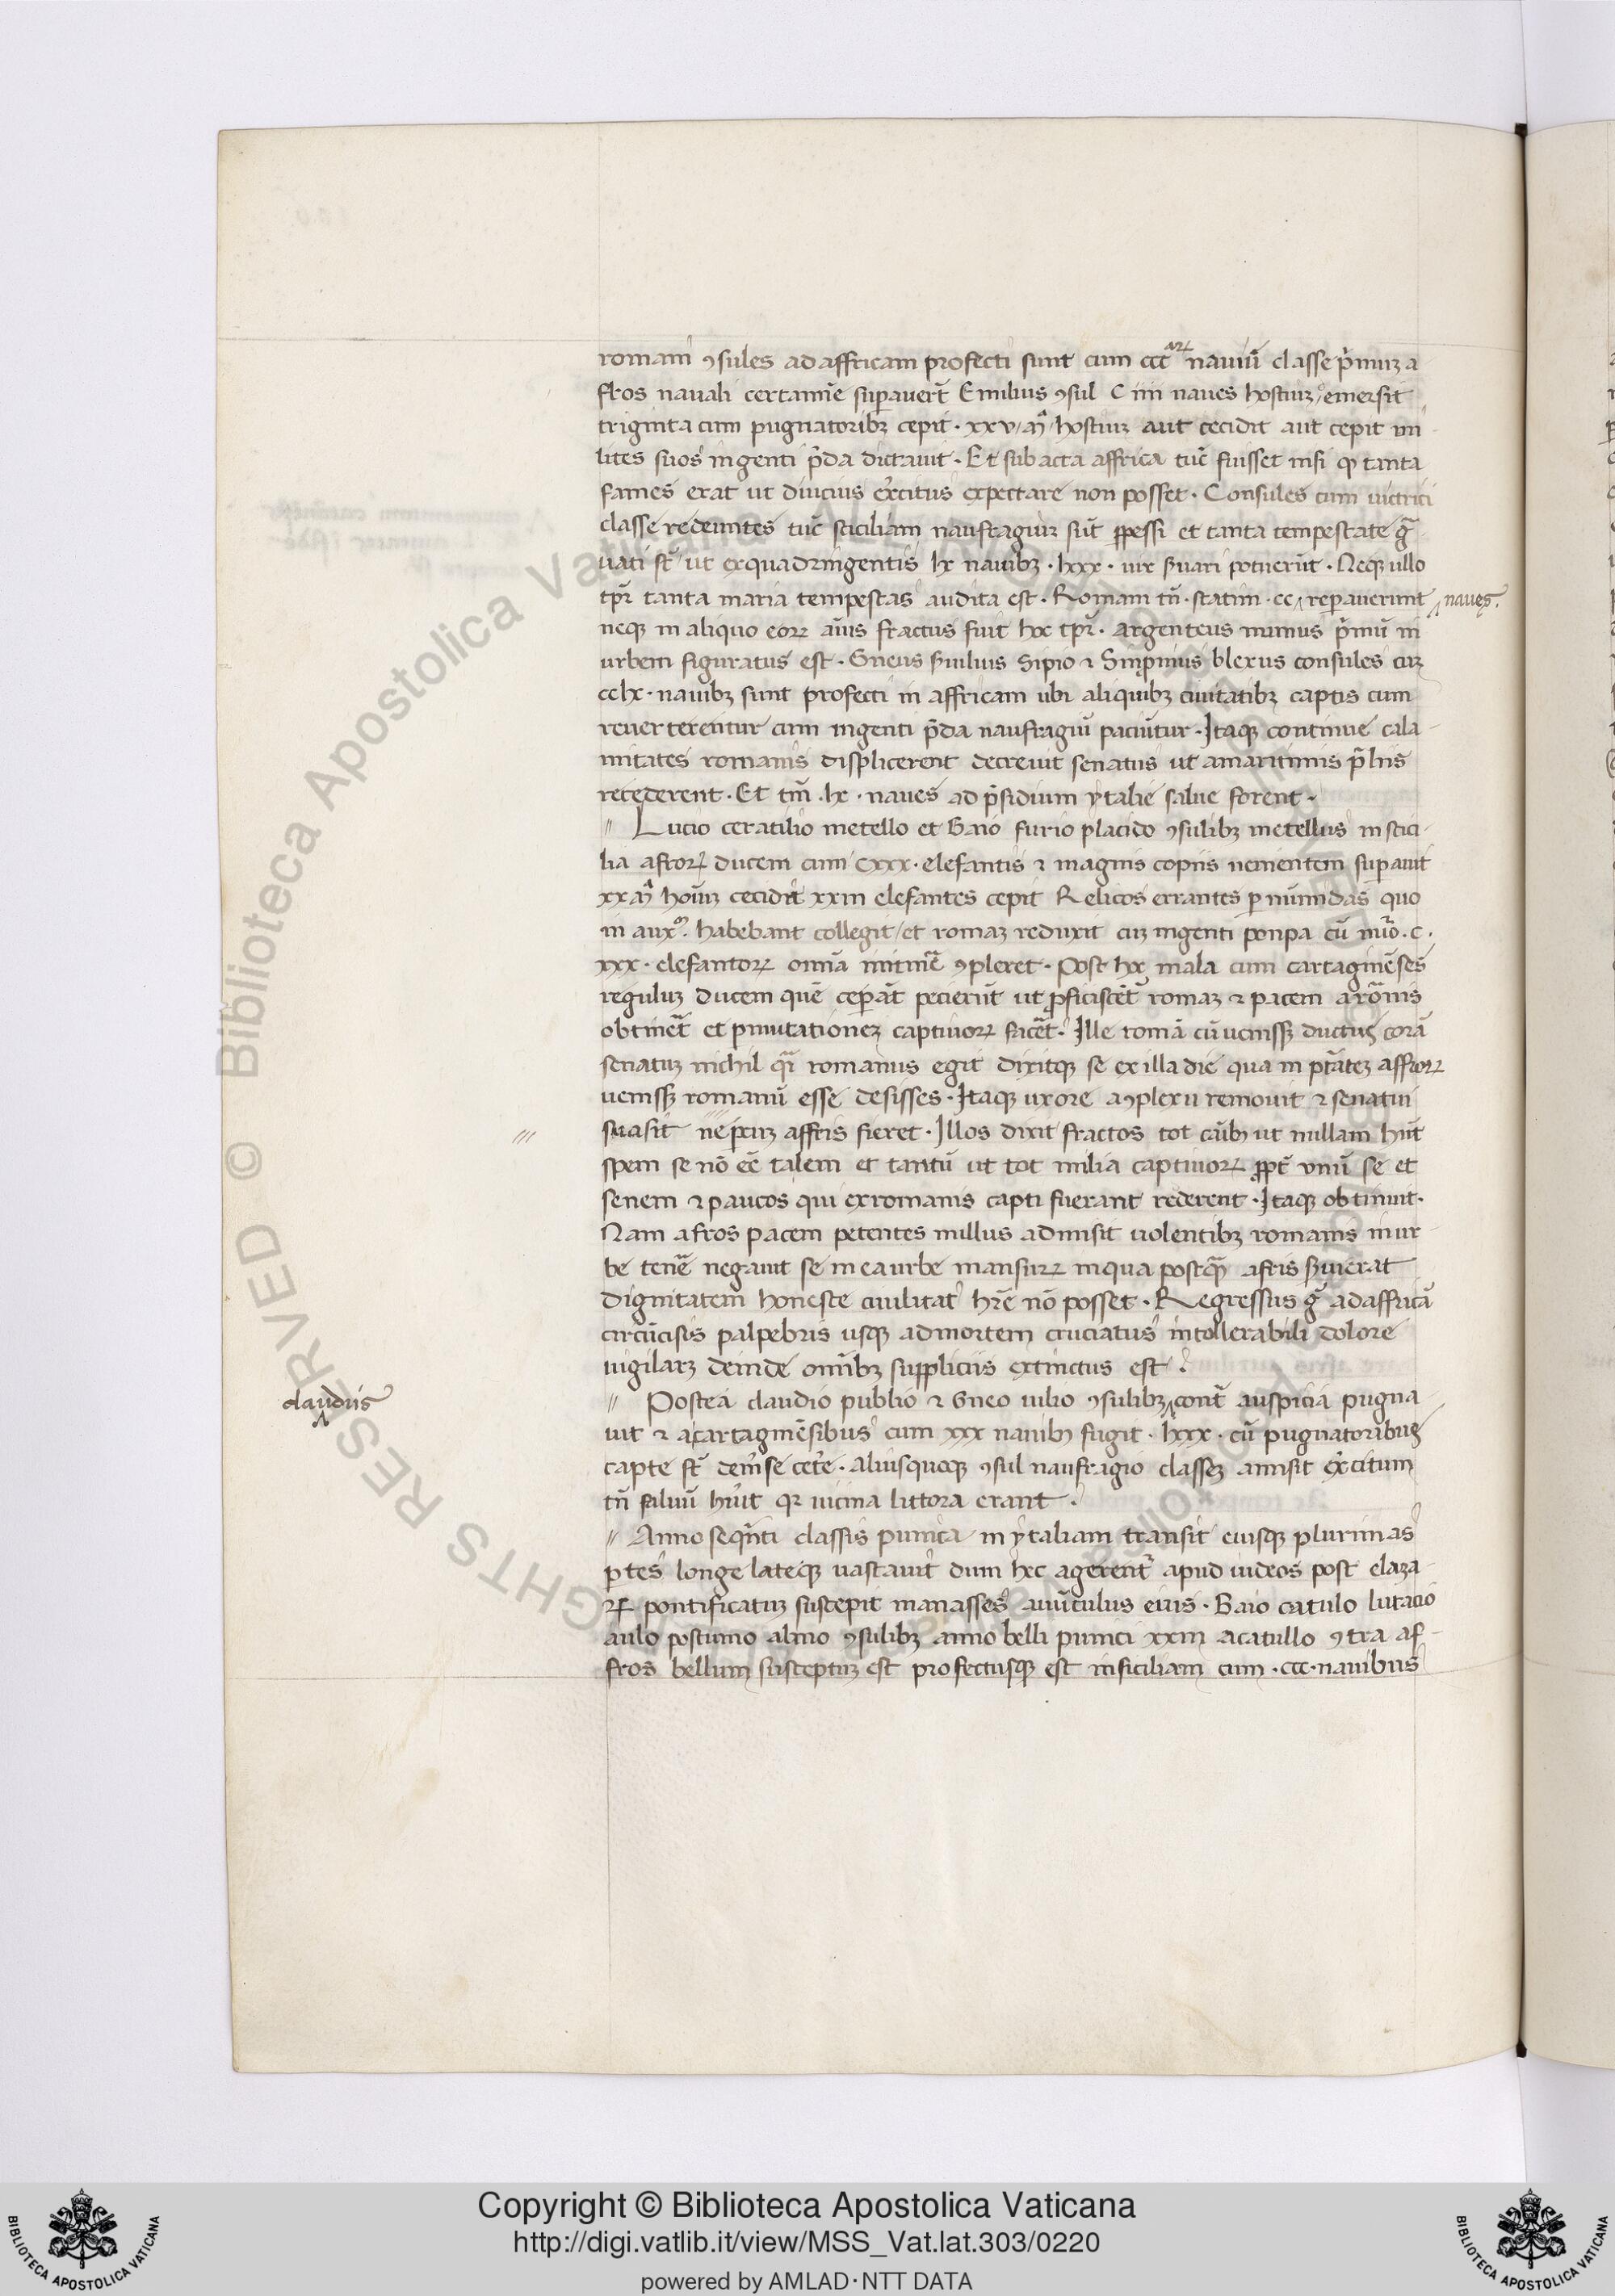 romani ꝯsules ad affricam profecti sunt cum ccctaꝝ nauiū classe pͥmuꝫ a
fros nauali certamīe suꝑauerūt Emilius ꝯsul C iiii naues hostiuꝫ emersit
triginta cum pugnatoribꝫ cepit · xxv hostiuꝫ aut cecidit aut cepit mi
lites suos ingenti p̄da dictauit · Et subacta affrica tūc fuisset nisi ꝙ tanta
fames erat ut diucius exͤcitus expectare non posset · Consules cum uictrici
classe redeuntes tūc sciciliam naufragiuꝫ sūt ꝑpessi et tanta tempestate gͣ
uati st̄ ut ex quadringentis lx nauibꝫ · lxxx · uix ẜuari potuerūt · Neqꝫ ullo
tꝑe tanta maria tempestas audita est · Romani tn̄ · statim · cc reperauerunt naues.
neqꝫ in aliquo eoꝝ aīus fractus fuit hoc tꝑe · argenteus numus pͥmū in
urbem figuratus est · Gneus ẜuilius Sipio ⁊ Simpnius blexus consules cuꝫ
cclx · nauibꝫ sunt profecti in affricam ubi aliquibꝫ ciuitatibꝫ captis cum
reuerterentur cum ingenti p̄da naufragiū paciūtur · Itaqꝫ continue cala
mitates romanis displicerent decreuit senatus ut a maritimis p̄liis
recederent · Et tm̄ · lx · naues ad p̄sidium ytalie salue forent ·
// Lucio ceratilio metello et Gaio furio placido ꝯsulibꝫ metellus in scici
lia afroꝝ ducem cum cxxx · elefantis ⁊ magnis copiis uenientem suꝑauit
xx cecidit xxiii elefantes cepit Relicos errantes ꝑ numidas quo
in auxͫ. habebant collegit / et romaꝫ reduxit cuꝫ ingenti ponpa cū nūo · c ·
xxx · elefantoꝝ omīa ꝯpleret · Post hoc mala cum cartaginēses
reguluꝫ ducem quē ceperāt pecierūt ut ꝓficiscēt romaꝫ ⁊ pacem a romanis
obtinēt et ꝑmutationeꝫ captiuoꝝ facēt · Ille romā cū uenissꝫ ductus corā
senatuꝫ nichil qͣi romanus egit dixitqꝫ se ex illa die qua in ptāteꝫ affroꝝ
uenissꝫ romanū esse desisses · Itaqꝫ uxore a ꝯplexu remouit ⁊ senatui
suasit ne pax affris fieret · Illos dixit fractos tot ut nullam hūt
spem se nō eē talem et tantū ut tot milia captiuoꝝ ꝓpt̄ vnū se et
senem ⁊ paucos qui ex romanis capti fuerant rederent · Itaqꝫ obtinuit ·
Nam afros pacem petentes nullus admisit uolentibꝫ romanis in ur
be tenēe negauit se in ea urbe mansuꝝ in qua postqͣꝫ afris ẜuierat
dignitatem honeste ciuilitat hr̄e nō posset · Regressus gͦ ad affricā
circūcisis palpebris usqꝫ ad mortem cruciatus intollerabili dolore
uigilaꝝ deinde omībꝫ suppliciis extinctus est ·
// Postea claudio publio ⁊ Gneo iulio ꝯsulibꝫ contͣ auspicia pugna
claudiꝰ
uit ⁊ a cartaginēsibus cum xxx nauibꝫ fugit · lxxx · cū pugnatoribus
capte st̄ demͥse cetͤe · aliusquoqꝫ ꝯsul naufragio classeꝫ amisit exͤcitum
tn̄ saluū hūit qꝛ uicina littora erant ·
// Anno seqn̄ti classis punica in ytaliam transit eiusqꝫ plurimas
ꝑtes longe lateqꝫ uastauit dum hec agerent apud iudeos post elaza
ꝝ pontificatuꝫ suscepit manasses auūculus eius · Gaio catulo lutacio
aulo postumo alino ꝯsulibꝫ anno belli punici xxiii a catullo ꝯtra af
fros bellum susceptuꝫ est profectusqꝫ est in siciliam cum · ccc · nauibus
Copyright © Biblioteca Apostolica Vaticana
http://digi.vatlib.it/view/MSS_Vat.lat.303/0220
powered by AMLAD·NTT DATA